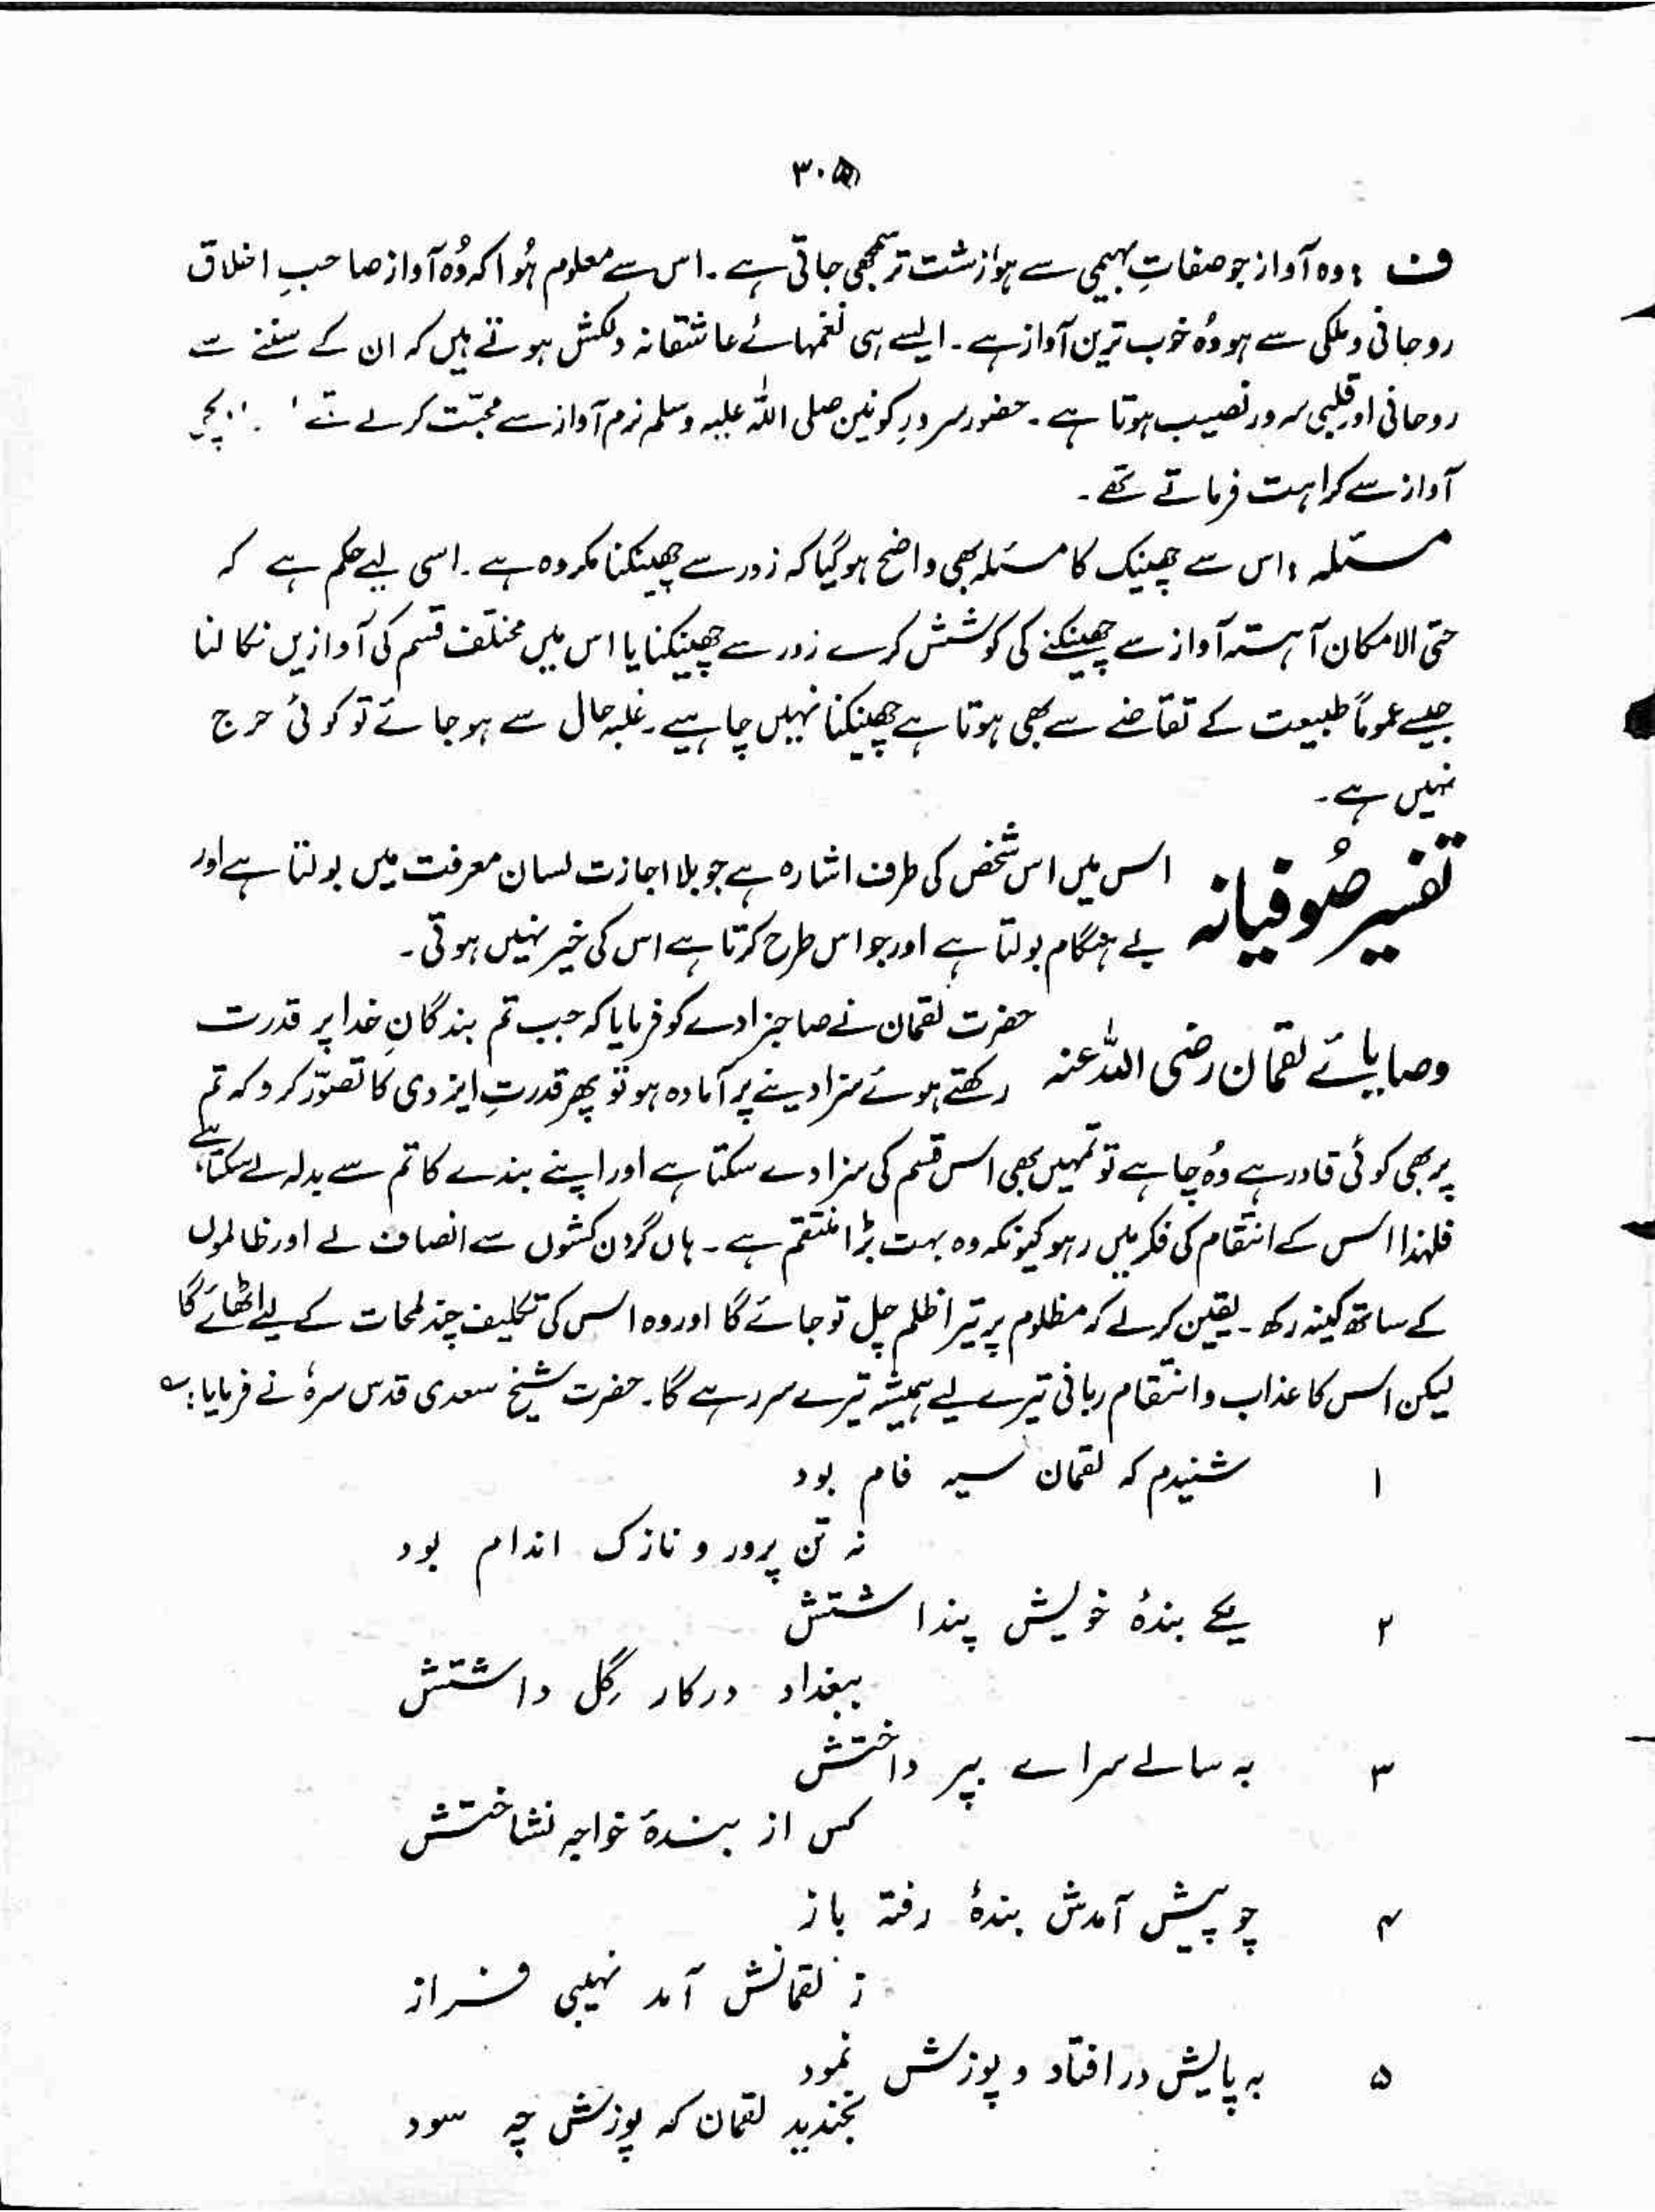 ۳۰۵
ف : وہ آواز جو صفاتِ بہیمی سے ہوا زشت تر سمجھی جاتی ہے۔ اس سے معلوم ہُوا کہ وُہ آواز صاحبِ اخلاق
روحانی و ملکی سے ہو وُہ خوب ترین آواز ہے۔ ایسے ہی نغمہائے عاشقانہ دلکش ہوتے ہیں کہ ان کے سننے سے
روحانی اور قلبی سرور نصیب ہوتا ہے۔ حضور سرورِ کونین صلی اللہ علیہ وسلم نرم آواز سے محبّت کرتے تھے
آواز سے کراہت فرماتے تھے۔
مسئلہ : اس سے چھینک کا مسئلہ بھی واضح ہوگیا کہ زور سے چھینکنا مکروہ ہے۔ اسی لیے حکم ہے کہ
حتی الامکان آہستہ آواز سے چھینکنے کی کوشش کرے زور سے چھینکنا یا اس میں مختلف قسم کی آوازیں نکالنا
جیسے عموماً طبیعت کے تقاضے سے بھی ہوتا ہے چھینکنا نہیں چاہیے۔ غلبہ حال سے ہو جائے تو کوئی حرج
نہیں ہے۔
تفسیر صُوفیانہ اس میں اس شخص کی طرف اشارہ ہے جو بلا اجازت لسان معرفت میں بولتا ہے اور
بے ہنگام بولتا ہے اور جو اس طرح کرتا ہے اس کی خیر نہیں ہوتی۔
وصایائے لقمان رضی اللہ عنہ حضرت لقمان نے صاحبزادے کو فرمایا کہ جب تم بندگانِ خدا پر قدرت
رکھتے ہوئے سزا دینے پر آمادہ ہو تو پھر قدرتِ ایزدی کا تصوّر کرو کہ تم
پر بھی کوئی قادر ہے وُہ چاہے تو تمہیں بھی اس قسم کی سزا دے سکتا ہے اور اپنے بندے کا تم سے بدلہ لے سکتا ہے
فلہٰذا اس کے انتقام کی فکر میں رہو کیونکہ وہ بہت بڑا منتقم ہے۔ ہاں گردن کشوں سے انصاف لے اور ظالموں
کے ساتھ کینہ رکھ۔ یقین کر لے کہ مظلوم پر تیرا ظلم چل تو جائے گا اور وہ اس کی تکلیف چند لمحات کے لیے اٹھائے گا
لیکن اس کا عذاب و انتقام ربانی تیرے لیے ہمیشہ تیرے سر رہے گا۔ حضرت شیخ سعدی قدس سرہٗ نے فرمایا : ؎
۱ شنیدم کہ لقمان سیہ فام بود
نہ تن پرور و نازک اندام بود
۲ یکے بندۂ خویش پنداشتش
ببغداد درکار گِل داشتش
۳ بہ سالے سراے بپرداختش
کس از بندۂ خواجہ نشاختش
۴ چو پیش آمدش بندۂ رفتہ باز
ز لقمانش آمد نہیبی فراز
۵ بہ پایش در افتاد و پوزش نمود
بخندید لقمان کہ پوزش چہ سود